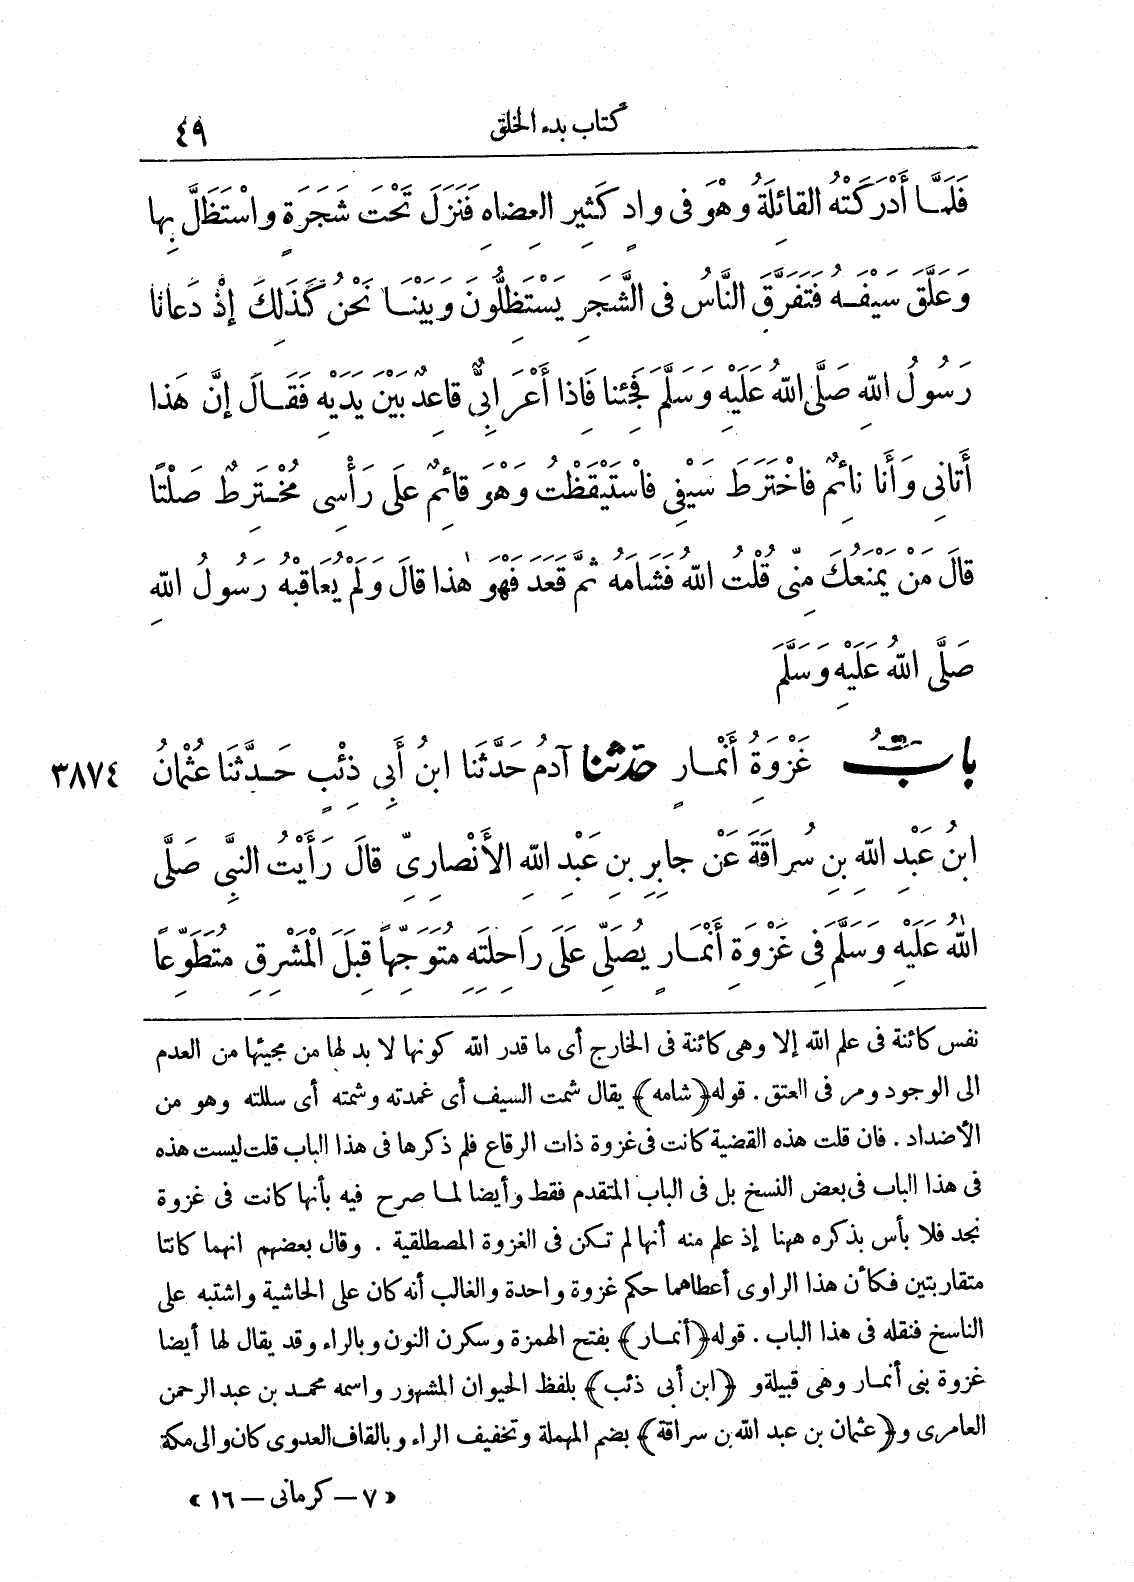 كتاب بدء الخلق ٤٩
فَلَمَّا أَدْرَكَتْهُ القائِلَةُ وهْوَ فى وادٍ كَثِيرِ العِضاهِ فَنَزَلَ تَحْتَ شَجَرَةٍ واسْتَظَلَّ بِها
وَعَلَّقَ سَيْفَهُ فَتَفَرَّقَ النَّاسُ فى الشَّجَرِ يَسْتَظِلُّونَ وَبَيْنَا نَحْنُ كَذَلِكَ إِذْ دَعانا
رَسُولُ اللهِ صَلَّى اللهُ عَلَيْهِ وَسَلَّمَ فَجِئنا فَإِذا أَعْرَابِىٌّ قاعِدٌ بَيْنَ يَدَيْهِ فَقَالَ إِنَّ هَذا
أَتانِى وَأَنا نائِمٌ فاخْتَرَطَ سَيْفِى فاسْتَيْقَظْتُ وَهْوَ قائِمٌ عَلَى رَأْسِى مُخْتَرِطٌ صَلْتًا
قالَ مَنْ يَمْنَعُكَ مِنِّى قُلْتُ اللهُ فَشامَهُ ثُمَّ قَعَدَ فَهْوَ هٰذا قالَ وَلَمْ يُعَاقِبْهُ رَسُولُ اللهِ
صَلَّى اللهُ عَلَيْهِ وَسَلَّمَ
بابُ غَزْوَةُ أَنْمارٍ حدّثنا آدمُ حَدَّثَنَا ابنُ أَبِى ذِئْبٍ حَدَّثَنَا عُثْمانُ ٣٨٧٤
ابنُ عَبْدِ اللهِ بِنِ سُراقَةَ عَنْ جابِرِ بنِ عَبْدِ اللهِ الأَنْصارِىِّ قالَ رَأَيْتُ النبِىَّ صَلَّى
اللهُ عَلَيْهِ وَسَلَّمَ فِى غَزْوَةِ أَنْمارٍ يُصَلِّى عَلَى رَاحِلَتِهِ مُتَوَجِّهاً قِبَلَ الْمَشْرِقِ مُتَطَوِّعاً
نفس كائنة فى علم الله إلا وهى كائنة فى الخارج أى ما قدر الله كونها لا بد لها من مجيئها من العدم
الى الوجود ومر فى العتق . قوله ﴿شامه﴾ يقال شمت السيف أى غمدته وشمته أى سللته وهو من
الأضداد . فان قلت هذه القضية كانت فى غزوة ذات الرقاع فلم ذكرها فى هذا الباب قلت ليست هذه
فى هذا الباب فى بعض النسخ بل فى الباب المتقدم فقط وأيضا لما صرح فيه بأنها كانت فى غزوة
نجد فلا بأس بذكره ههنا إذ علم منه أنها لم تكن فى الغزوة المصطلقية . وقال بعضهم انهما كانتا
متقاربتين فكأن هذا الراوى أعطاهما حكم غزوة واحدة والغالب أنه كان على الحاشية واشتبه على
الناسخ فنقله فى هذا الباب . قوله ﴿أنمار﴾ بفتح الهمزة وسكرن النون وبالراء وقد يقال لها أيضا
غزوة بنى أنمار وهى قبيلة و ﴿ابن أبى ذئب﴾ بلفظ الحيوان المشهور واسمه محمد بن عبد الرحمن
العامرى و ﴿عثمان بن عبد الله بن سراقة﴾ بضم المهملة وتخفيف الراء وبالقاف العدوى كان والى مكة
« ٧ – كرمانى – ١٦ »